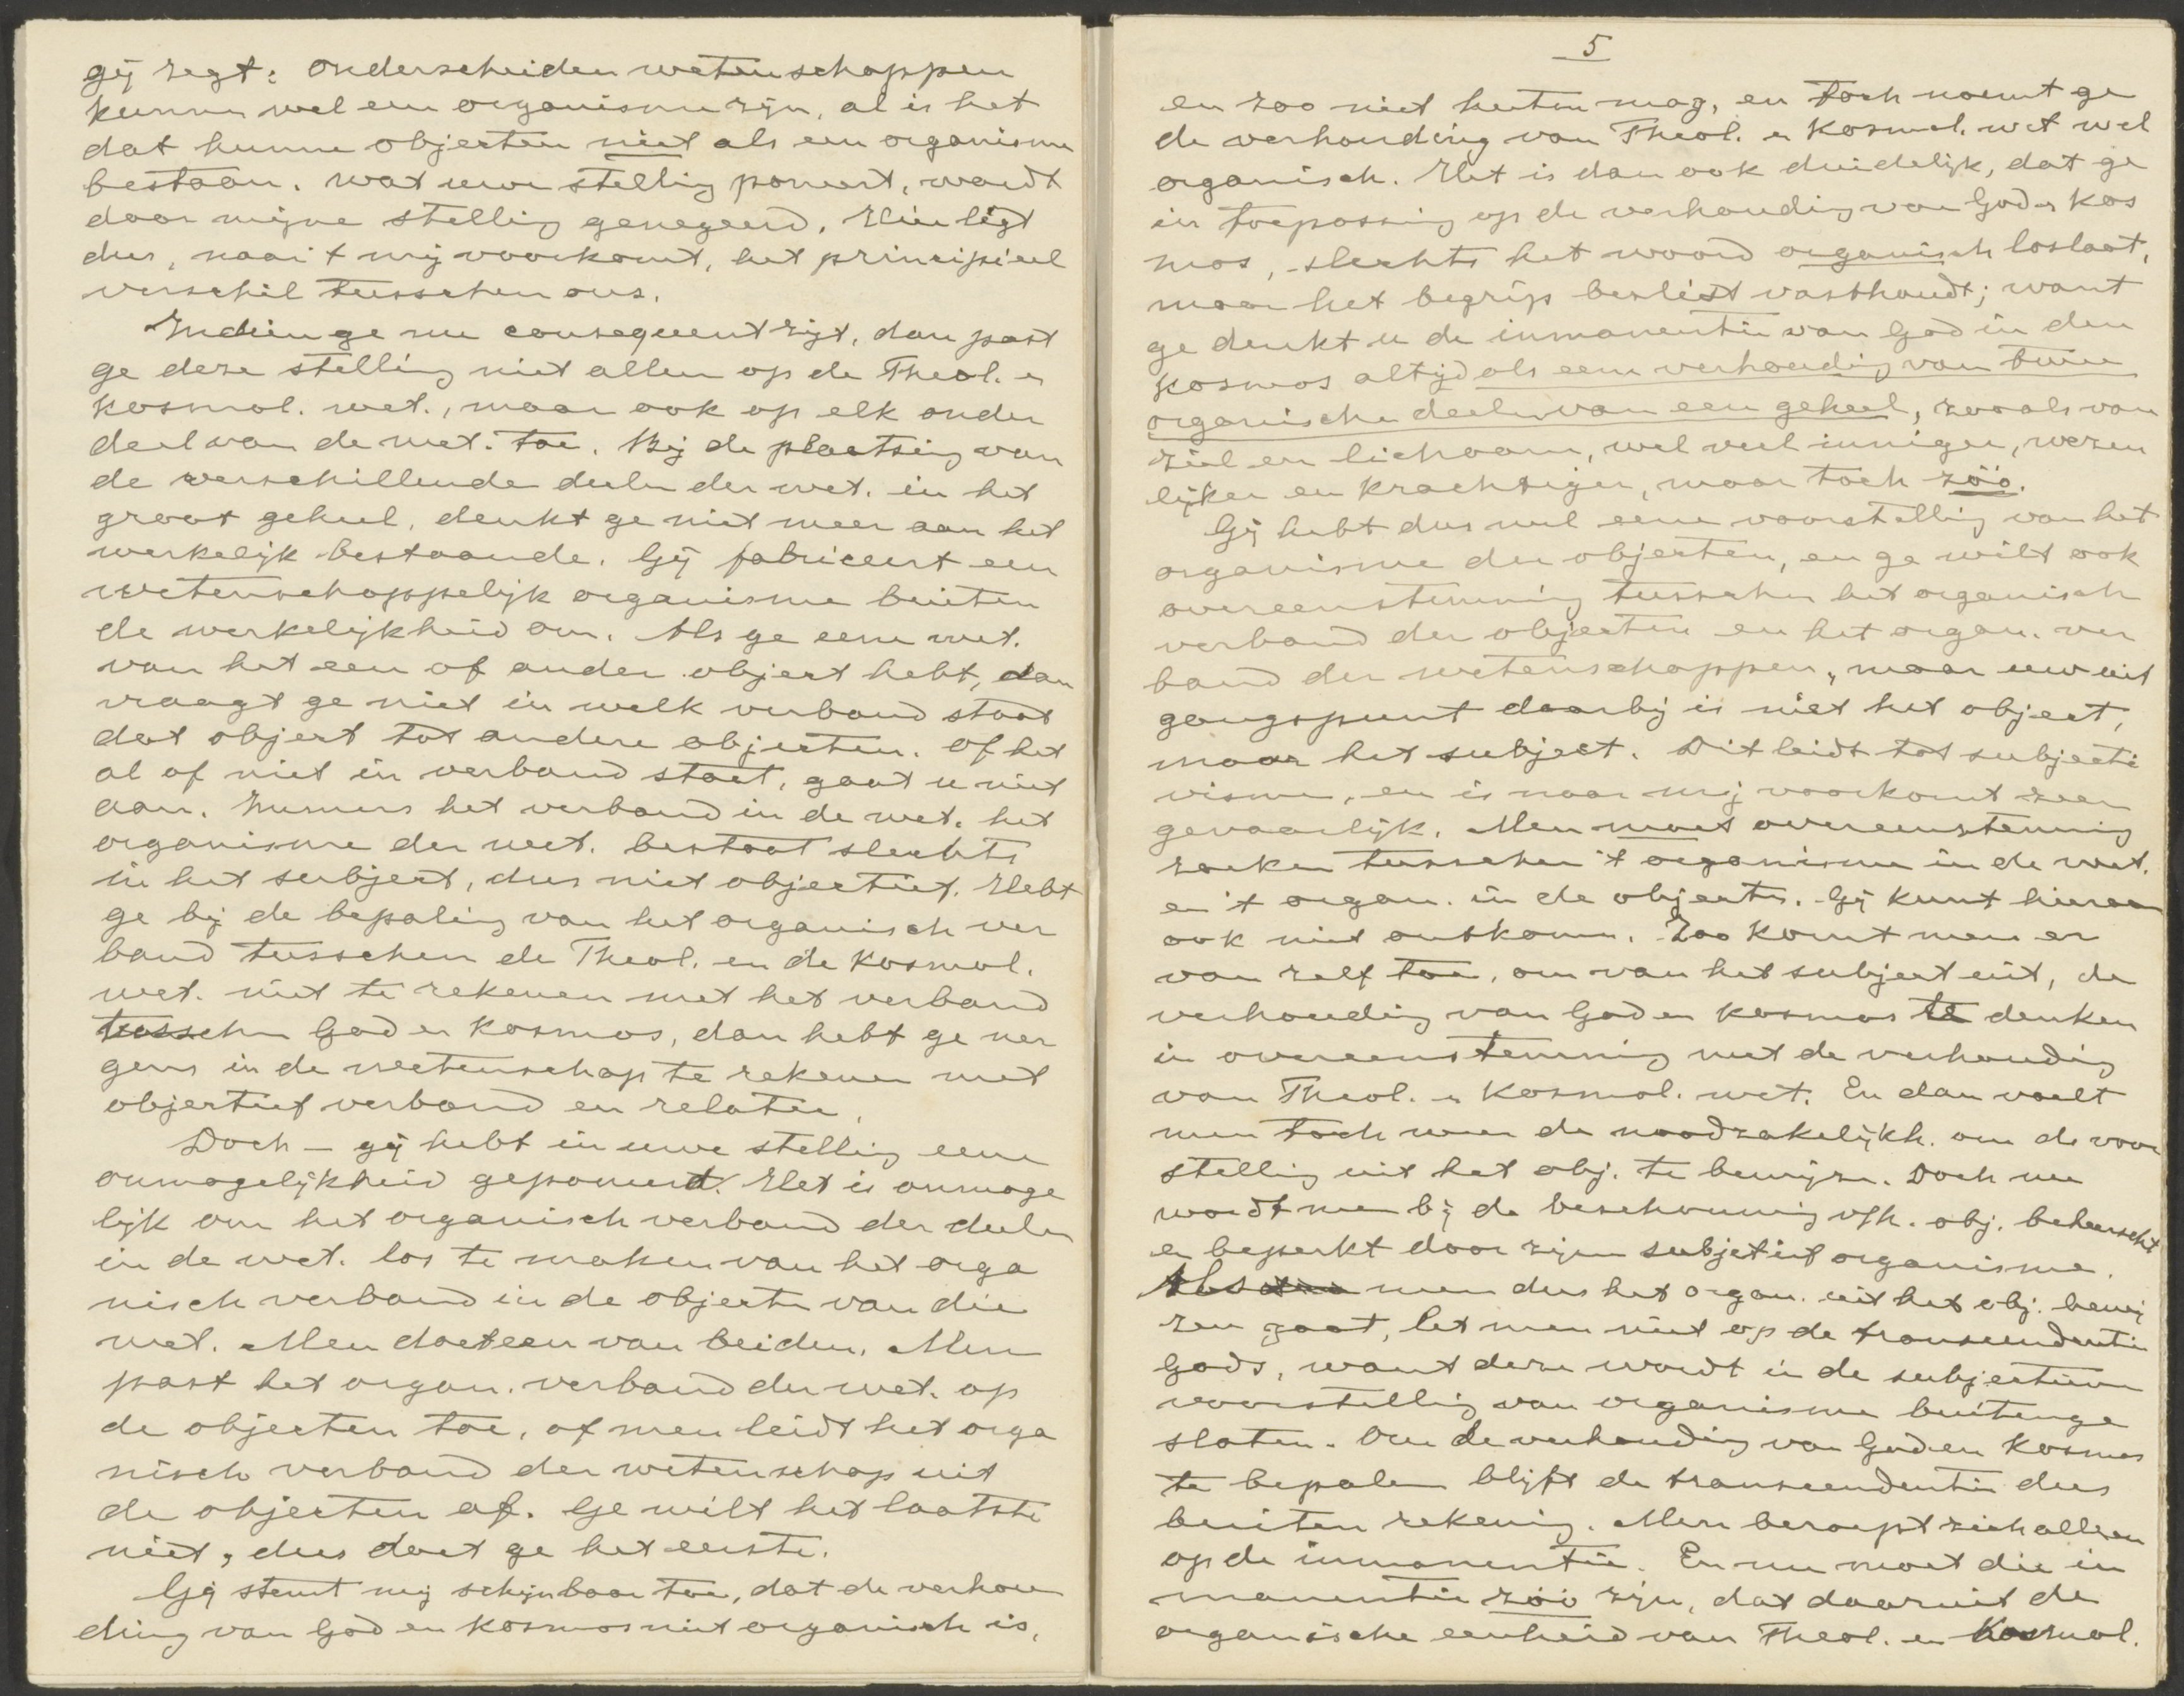 gij zegt: onderscheiden wetenschappen
kunnen wel een organisme zijn, al is het
dat hunne objecten niet als een organisme
bestaan. Wat uwe stelling poneert, wordt
door mijne stelling genegeerd. Hier ligt
dus, naar 't mij voorkomt, het principieel
verschil tusschen ons.
Indien ge nu consequent zijt, dan past
ge deze stelling niet alleen op de Theol. en
Kosmol. wet., maar ook op elk onder
deel van de wet. toe. Bij de plaatsing van
de verschillende deelen der wet. in het
groot geheel, denkt ge niet meer aan het
werkelijk bestaande. Gij fabriceert een
wetenschappelijk organisme buiten
de werkelijkheid om. Als ge eene wet.
van het een of ander object hebt, dan
vraagt ge niet in welk verband staat
dat object tot andere objecten. Of het
al of niet in verband staat, gaat u niet
aan. Immers het verband in de wet. het
organisme der wet. bestaat slechts
in het subject, dus niet objectief. Hebt
ge bij de bepaling van het organisch ver
band tusschen de Theol. en de Kosmol.
wet. niet te rekenen met het verband
tusschen God en Kosmos, dan hebt ge ner
gens in de wetenschap te rekenen met
objectief verband en relatie.
Doch – gij hebt in uwe stelling eene
onmogelijkheid geponeerd. Het is onmoge
lijk om het organisch verband der deelen
in de wet. los te maken van het orga
nisch verband in de objecten van die
wet. Men doet een van beiden. Men
past het organ. verband der wet. op
de objecten toe, of men leidt het orga
nisch verband der wetenschap uit
de objecten af. Ge wilt het laatste
niet, dus doet ge het eerste.
Gij stemt mij schijnbaar toe, dat de verhou
ding van God en Kosmos niet organisch is,
5
en zoo niet heeten mag, en toch noemt ge
de verhouding van Theol. en Kosmol. wet wel
organisch. Het is dan ook duidelijk, dat ge
in toepassing op de verhouding van God en Kos
mos, slechts het woord organisch loslaat,
maar het begrip beslist vasthoudt; want
ge denkt u de inmanentie van God in den
Kosmos altijd als eene verhouding van twee
organische deelen van een geheel, zooals van
ziel en lichaam, wel veel inniger, wezen
lijker en krachtiger, maar toch zóó.
Gij hebt dus wel eene voorstelling van het
organisme der objecten, en ge wilt ook
overeenstemming tusschen het organisch
verband der objecten en het organ. ver
band der wetenschappen, maar uw uit
gangspunt daarbij is niet het object,
maar het subject. Dit leidt tot subjecti
visme, en is naar mij voorkomt zeer
gevaarlijk. Men moet overeenstemming
zoeken tusschen 't organisme in de wet.
en 't organ. in de objecten. Gij kunt hieraan
ook niet ontkomen. Zoo komt men er
van zelf toe, om van het subject uit, de
verhouding van God en Kosmos te denken
in overeenstemming met de verhouding
van Theol. en Kosmol. wet. En dan voelt
men toch weer de noodzakelijkh. om de voor
stelling uit het obj. te bewijzen. Doch nu
wordt men bij de beschouwing v/h. obj. beheerscht
en beperkt door zijn subjetief organisme.
Als men dus het organ. uit het obj. bewij
zen gaat, let men niet op de transcendentie
Gods, want deze wordt in de subjectieve
voorstelling van organisme buitenge
sloten. Om de verhouding van God en Kosmos
te bepalen blijft de transcendentie dus
buiten rekening. Men beroept zich alleen
op de inmanentie. En nu moet die in
manentie zóó zijn, dat daaruit de
organische eenheid van Theol. en Kosmol.